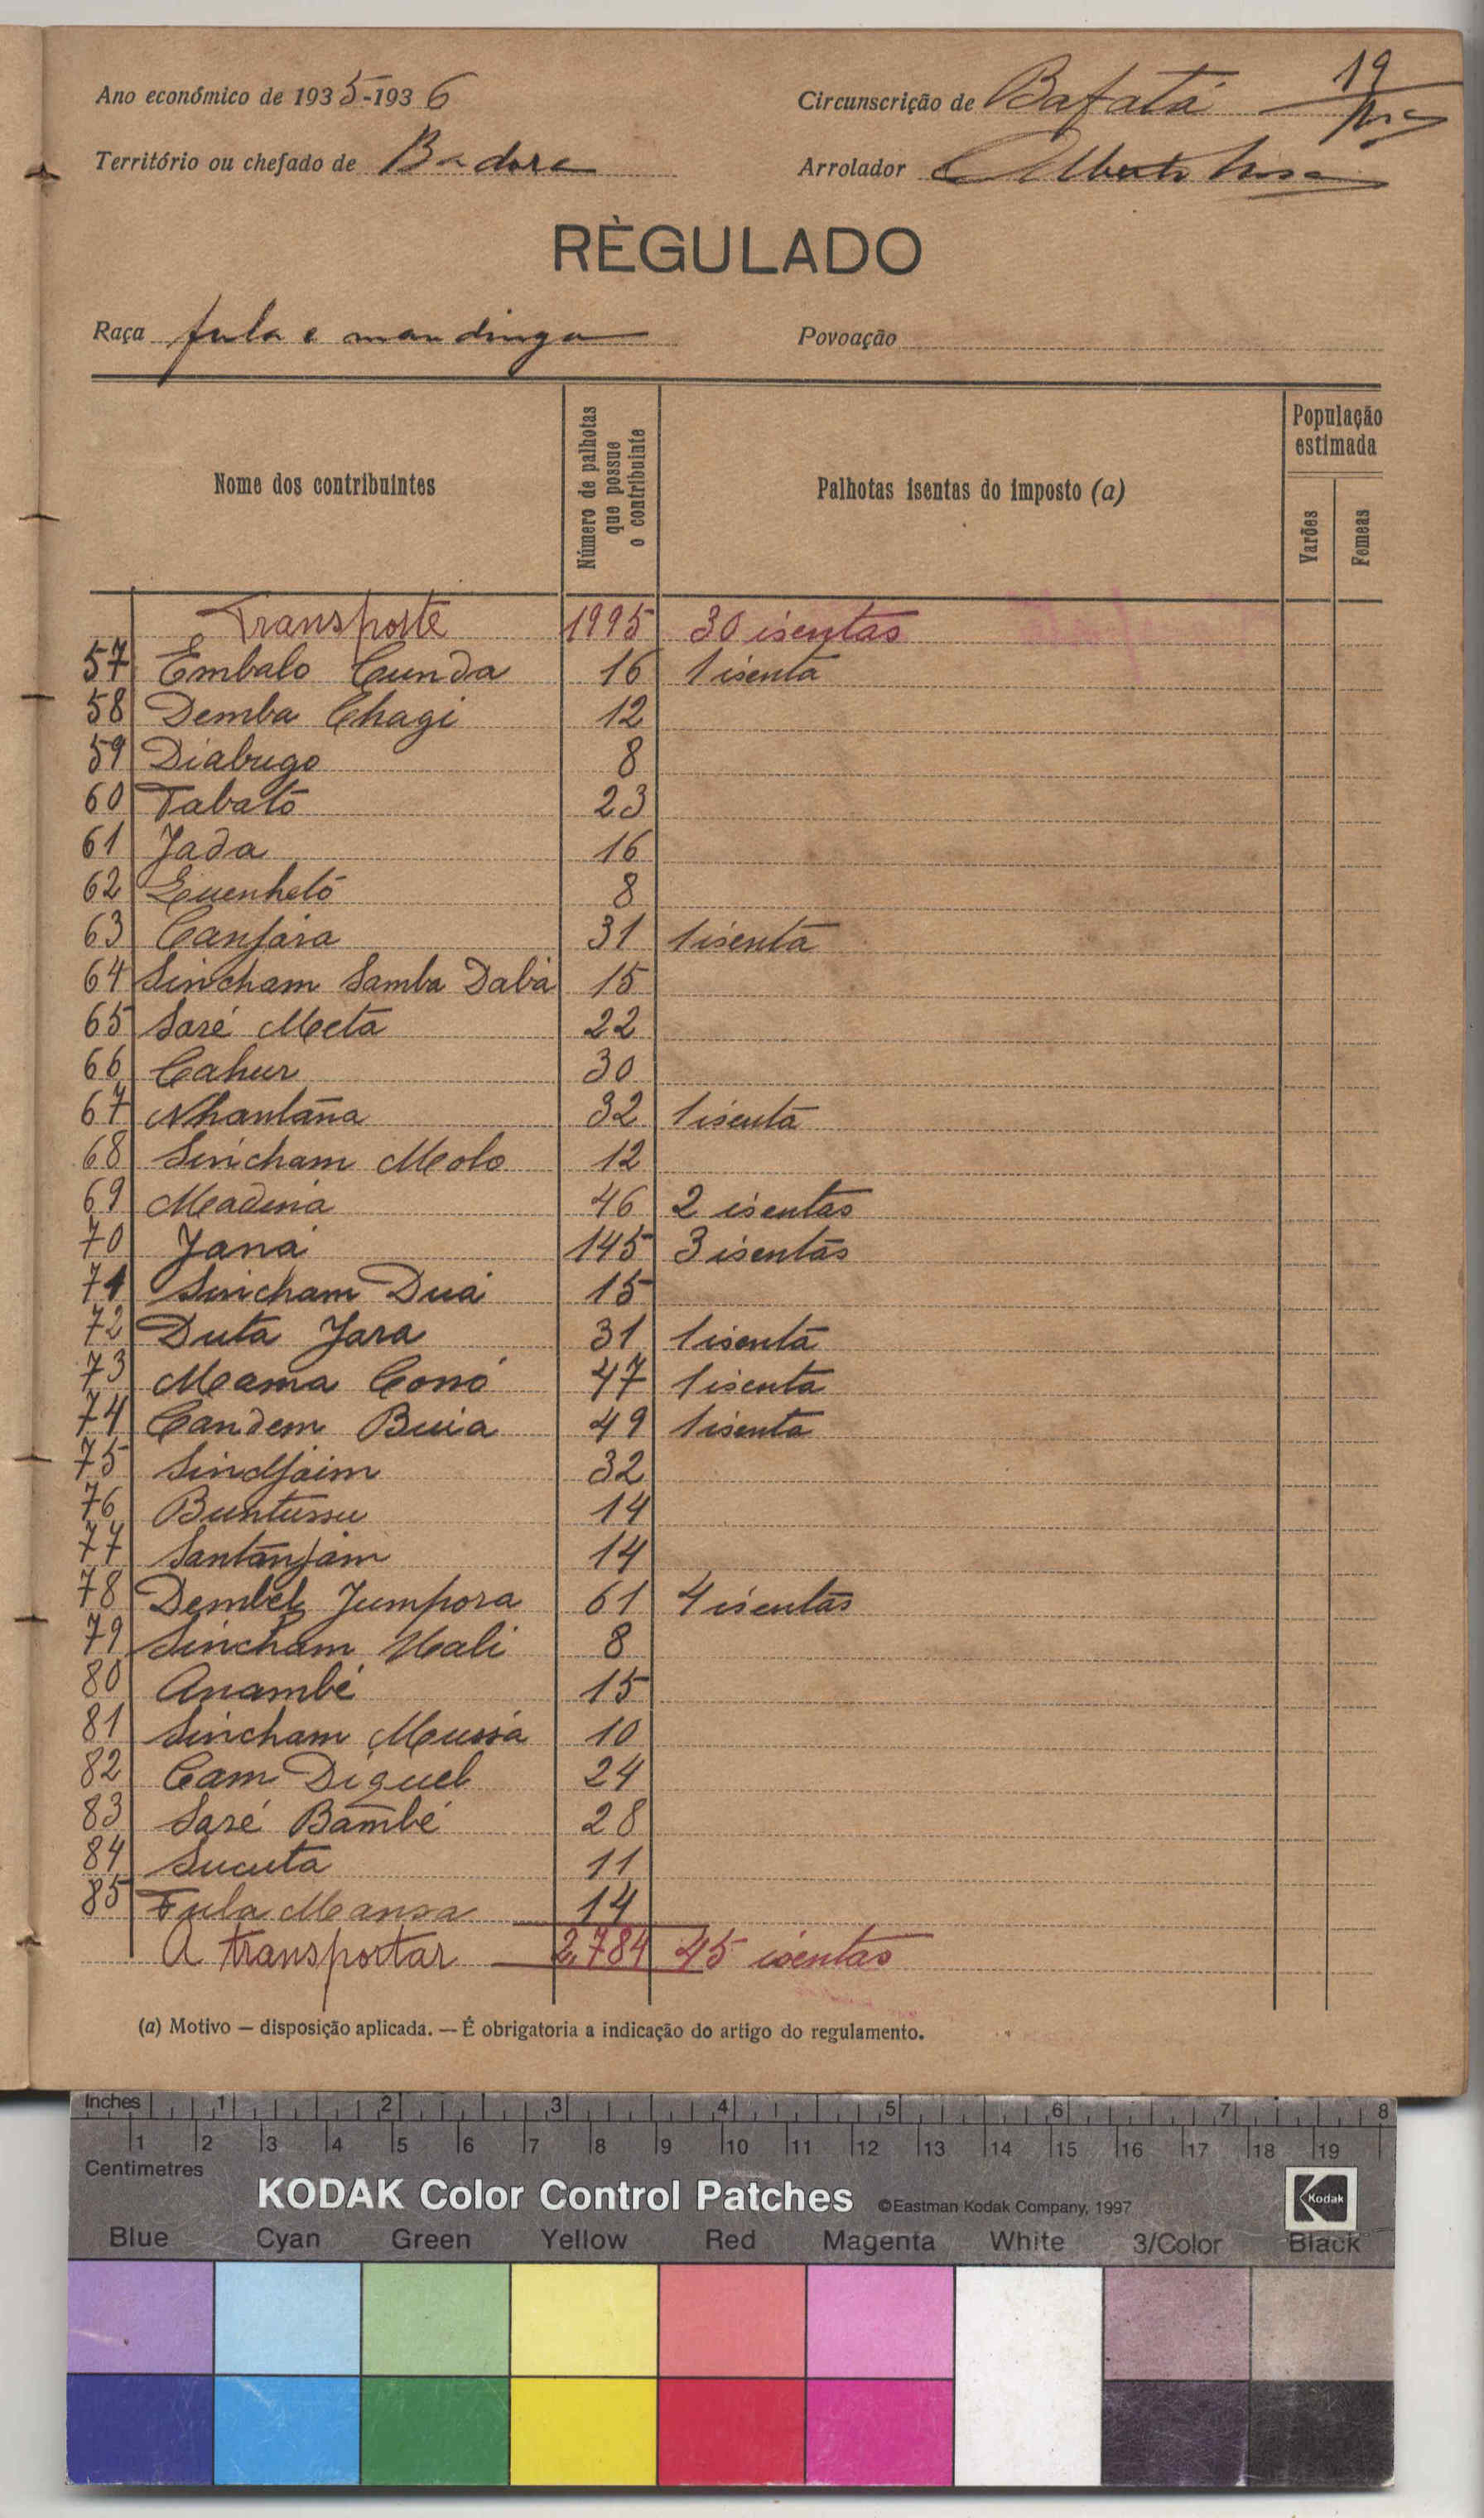 19
Ano económico de 1935-1936
Circunscrição de Bafatá
Território ou chefado de Badora
Arrolador Alberto
RÈGULADO
Raça fula e mandinga
Povoação
Nome dos contribuintes
Número de palhotas que possue o contribuinte
Palhotas isentas do imposto (a)
População estimada
Varões
Femeas
Transporte 1995 30 isentas
57 Embalo Cunda 16 1 isenta
58 Demba Chagi 12
59 Diabugo 8
60 Tabató 23
61 Jada 16
62 Luenheló 8
63 Canjára 31 1 isenta
64 Sincham Samba Dabá 15
65 Saré Meta 22
66 Cahur 30
67 Nhantána 32 1 isenta
68 Sincham Molo 12
69 Madina 46 2 isentas
70 Janá 145 3 isentas
71 Sincham Duá 15
72 Duta Jara 31 1 isenta
73 Mama Conó 47 1 isenta
74 Candem Buia 49 1 isenta
75 Sindjaim 32
76 Buntussu 14
77 Santanjam 14
78 Dembel Jumpora 61 4 isentas
79 Sincham Uali 8
80 Anambé 15
81 Sincham Mussá 10
82 Cam Diguel 24
83 Saré Bambé 28
84 Sucuta 11
85 Fula Mansa 14
A transportar 2,784 45 isentas
(a) Motivo — disposição aplicada. — É obrigatoria a indicação do artigo do regulamento.
Inches 1 2 3 4 5 6 7 8
1 2 3 4 5 6 7 8 9 10 11 12 13 14 15 16 17 18 19
Centimetres
KODAK Color Control Patches ©Eastman Kodak Company, 1997
Kodak
Blue Cyan Green Yellow Red Magenta White 3/Color Black